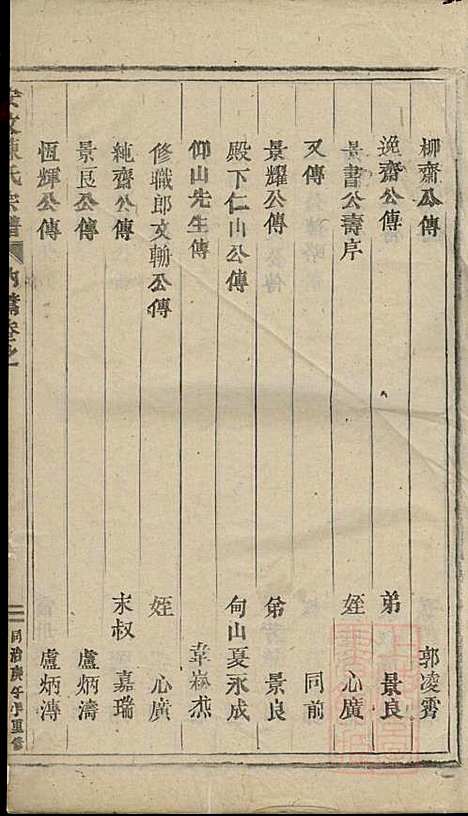 柳齋公傳 郭凌霄
逸齋公傳 弟 景良
景書公壽序 姪 心廣
又傳 同前
景耀公傳 弟 景良
殿下仁山公傳 甸山夏永成
仰山先生傳 韋森杰
修職郎文翰公傳 姪 心廣
純齋公傳 末叔 嘉瑞
景良公傳 盧炳濤
恆輝公傳 盧炳濤
安文陳氏宗譜 內篇卷之一 二 同治庚午年重修